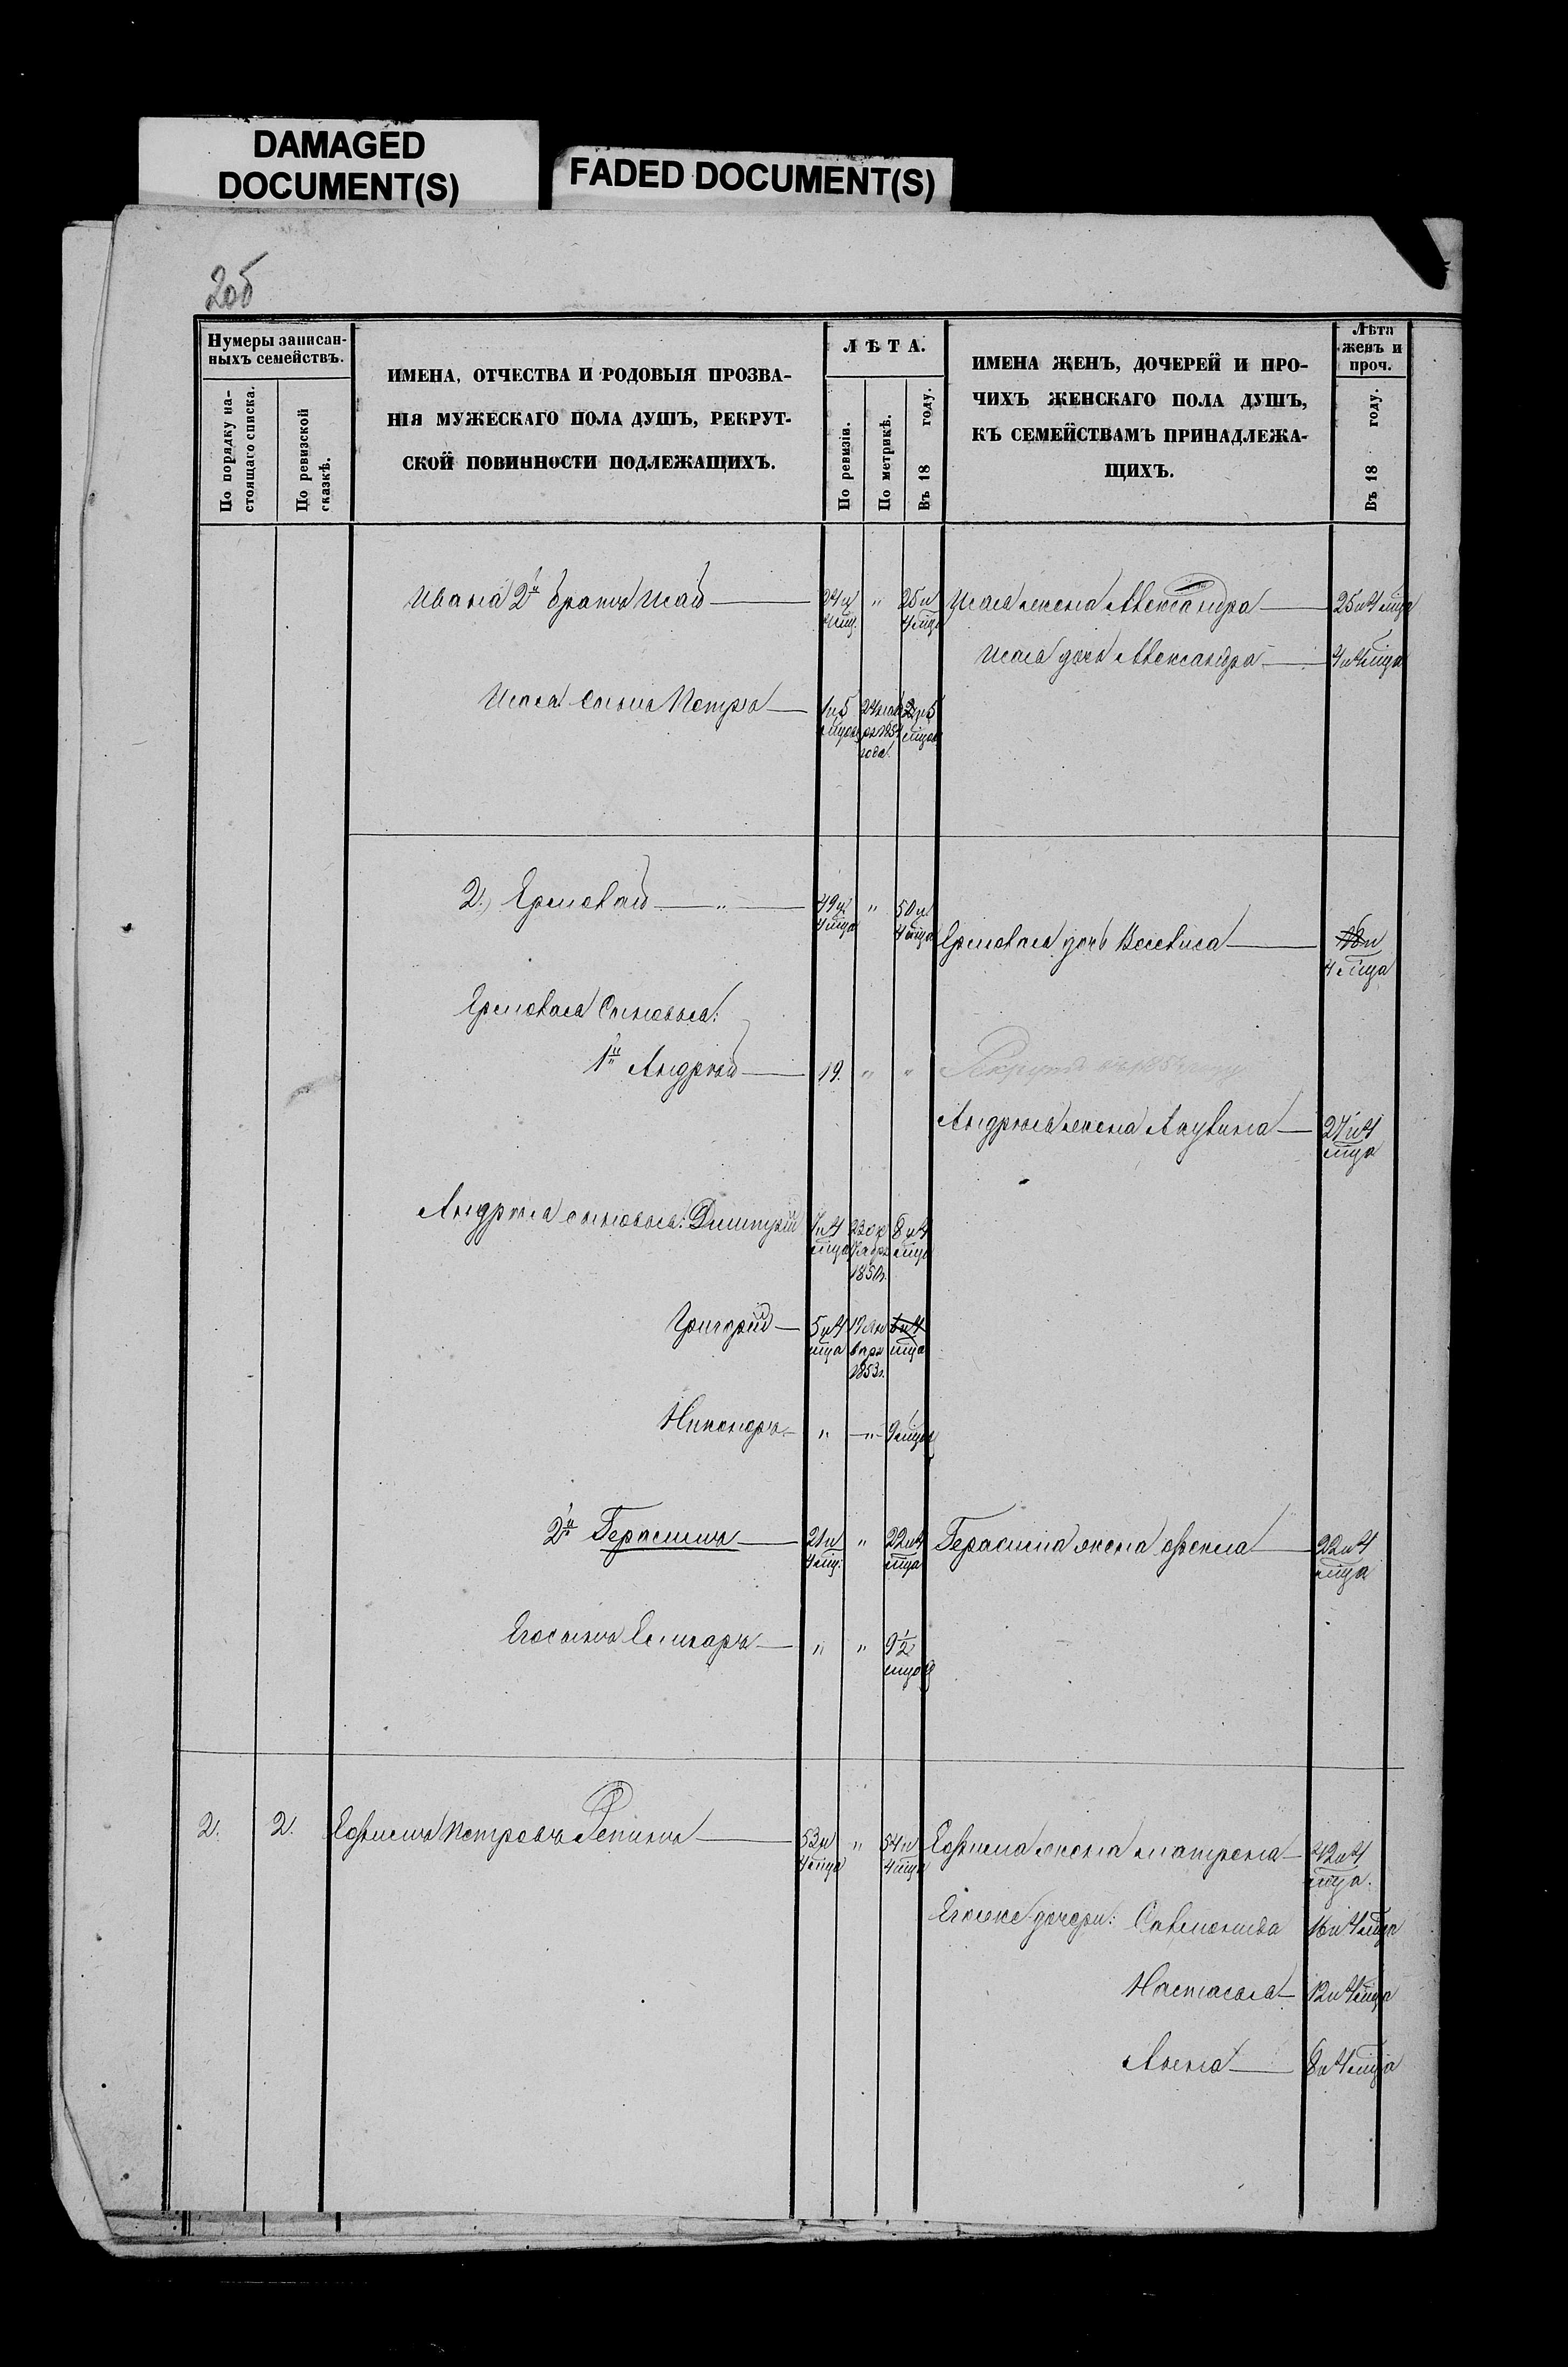 DAMAGED
DOCUMENT(S)
FADED DOCUMENT(S)
2об
Нумеры записан-
ныхъ семействъ.
По порядку на-
стоящаго списка.
По ревизской
сказкѣ.
ИМЕНА, ОТЧЕСТВА И РОДОВЫЯ ПРОЗВА-
НІЯ МУЖЕСКАГО ПОЛА ДУШЪ, РЕКРУТ-
СКОЙ ПОВИННОСТИ ПОДЛЕЖАЩИХЪ.
ЛѢТА.
По ревизіи.
По метрикѣ.
Въ 18 году.
ИМЕНА ЖЕНЪ, ДОЧЕРЕЙ И ПРО-
ЧИХЪ ЖЕНСКАГО ПОЛА ДУШЪ,
КЪ СЕМЕЙСТВАМЪ ПРИНАДЛЕЖА-
ЩИХЪ.
Лѣта
женъ и
проч.
Въ 18 году.
Ивана 2й братъ Исай 24 и 4 мца " 25 и 4 мца Исая жена Александра 25 и 4 мца
Исая дочь Александра 4 и 4 мца
Исая сынъ Петръ 1 и 5 мцовъ 2 и 5 мцовъ
2.) Ермолай " 49 и 4 мца " 50 и 4 мца
Ермолая дочь Василиса 18 и 4 мца
Ермолая сыновья:
1й Андрей 19. " " Рекрутъ въ 1854 году
Андрея жена Акулина 27 и 4 мца
Андрея сыновья: Дмитрій 7 и 4 мца 23 октября 1850 г. 8 и 4 мца
Григорій 5 и 4 мца 17 января 1853 г. 6 и 4 мца
Никоноръ " " 9 мцовъ
2й Герасимъ 21 и 4 мца " 22 и 4 мца Герасима жена Фекла 22 и 4 мца
Его сынъ " " 9 1/2 мцовъ
2. 2. Ефимъ Петровъ Репинъ 53 и 4 мца " 54 и 4 мца Ефима жена Матрена 42 и 4 мца.
Его же дочери: Соломонида 16 и 4 мца
Настасья 12 и 4 мца
Анна 8 и 4 мца